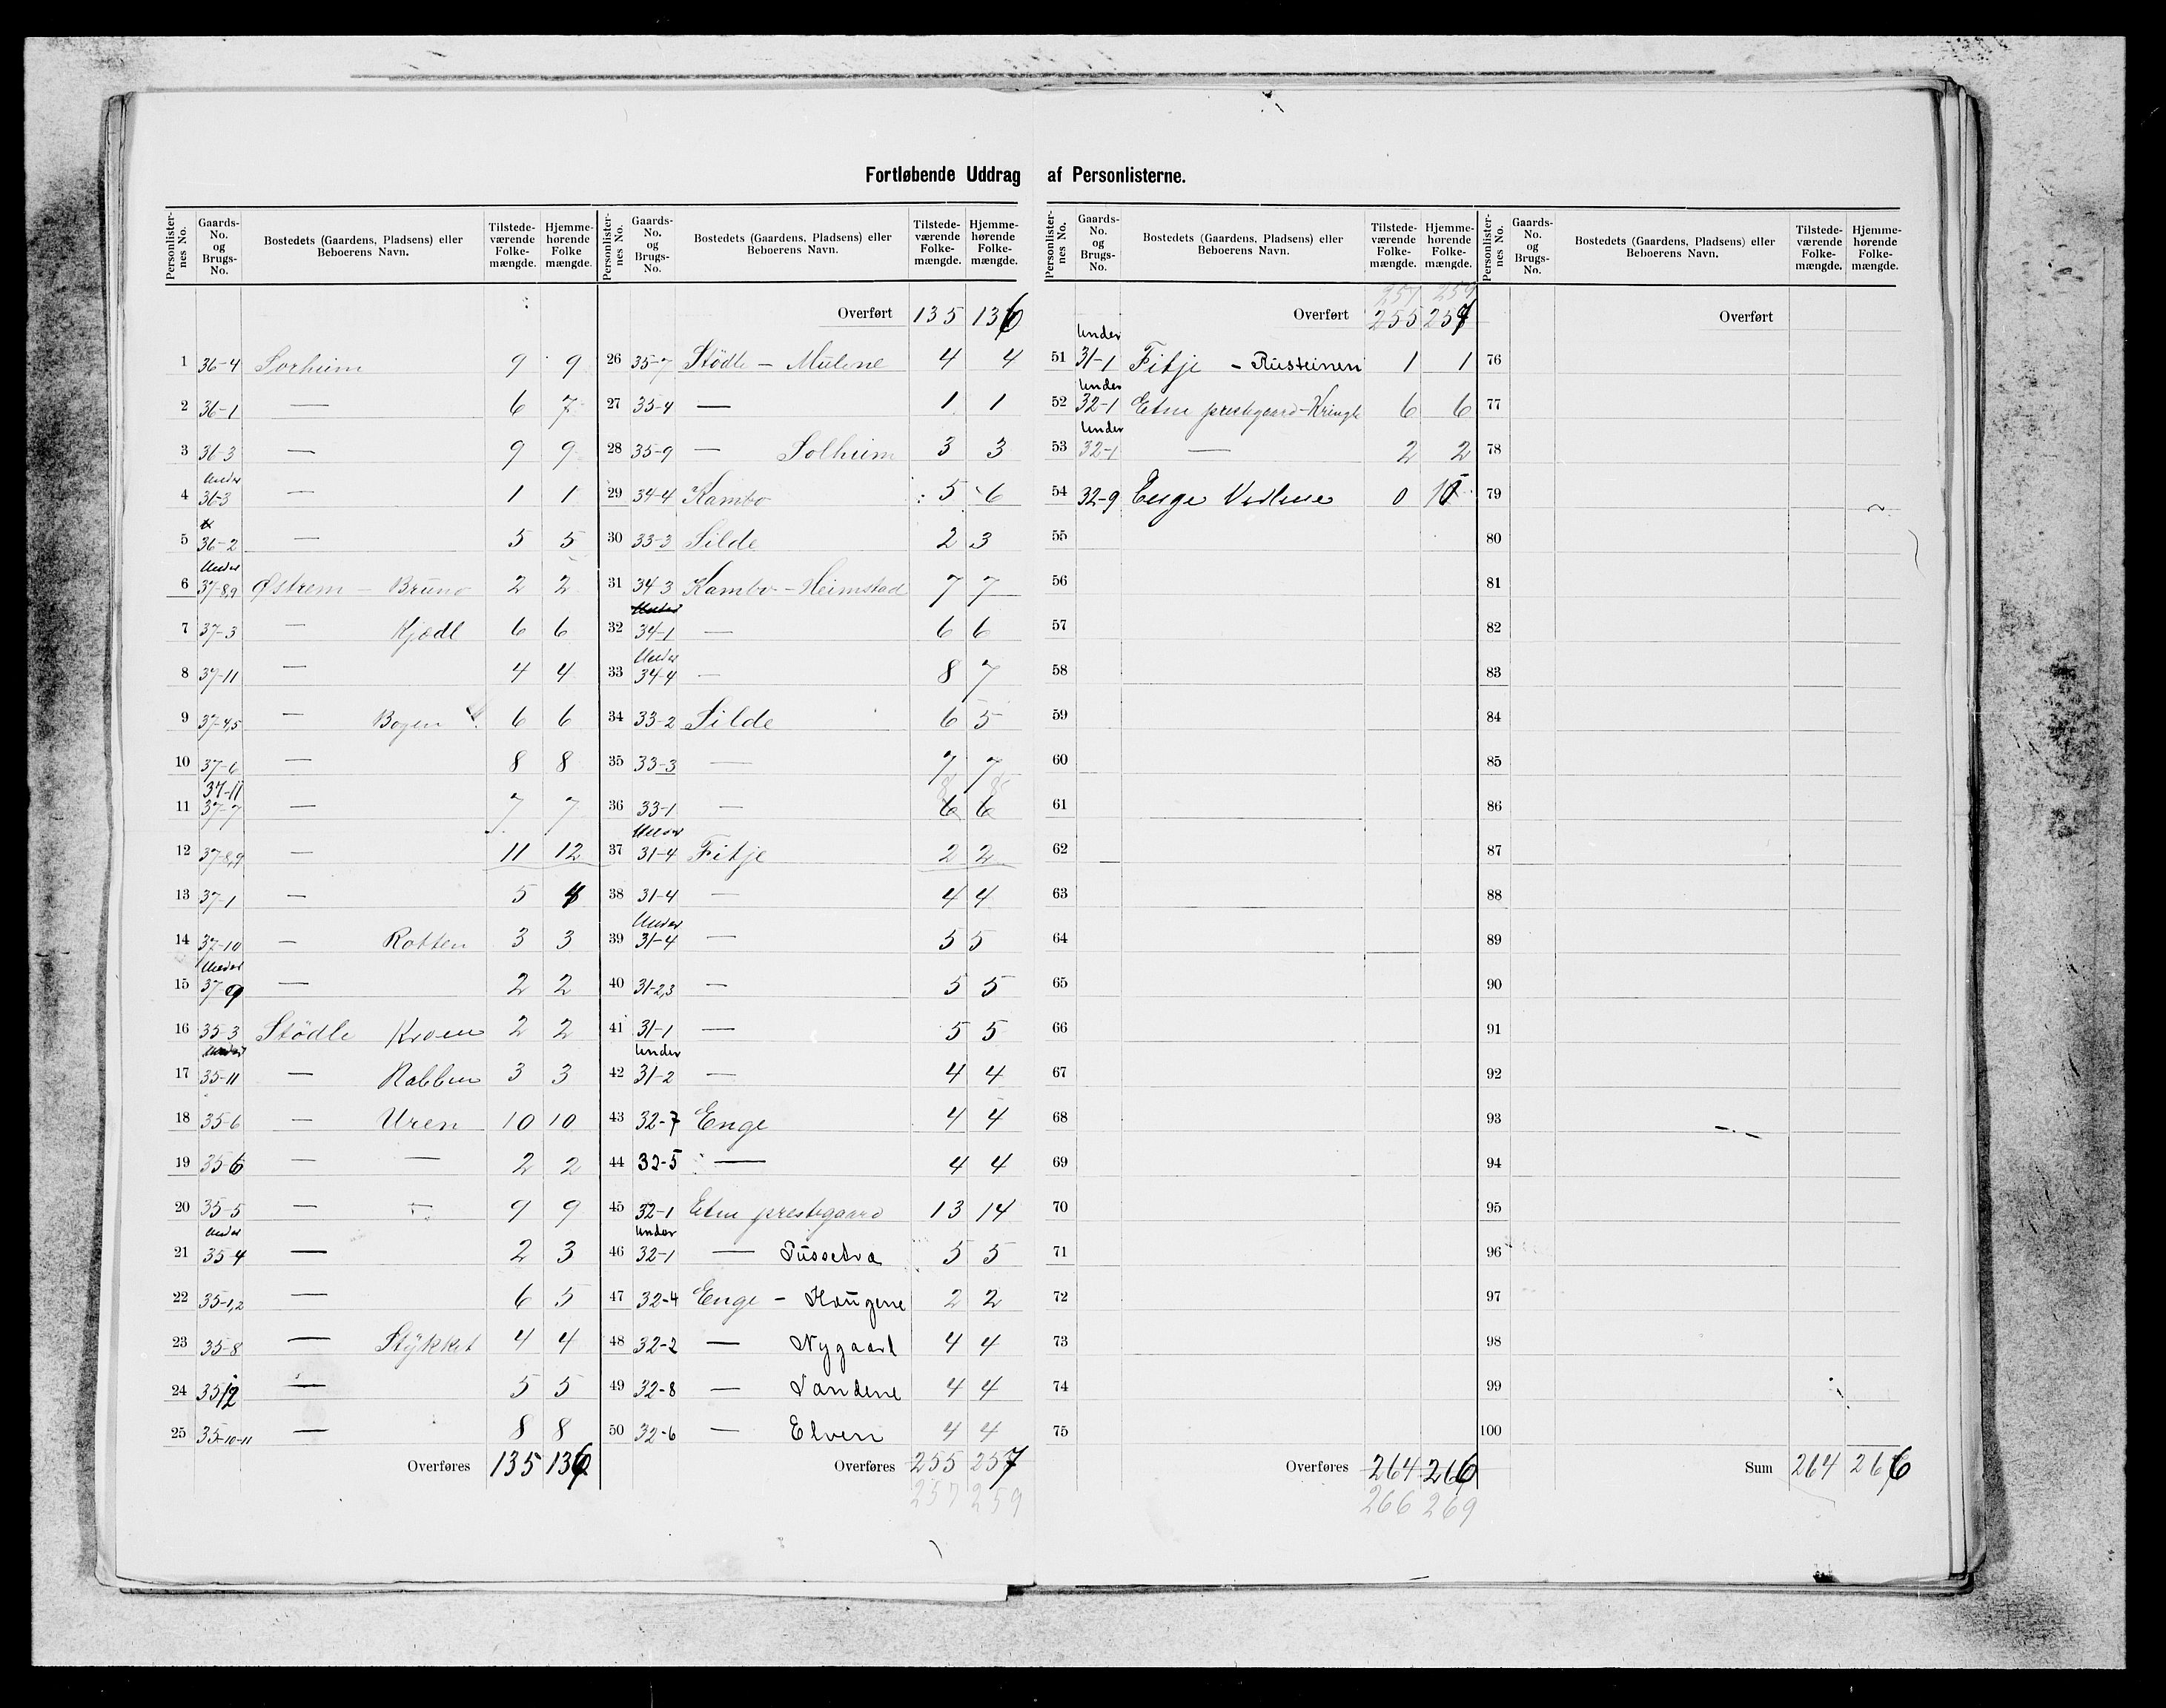 Fortløbende Uddrag af Personlisterne.
Personlister-nes No. Gaards-No. og Brugs-No. Bostedets (Gaardens, Pladsens) eller Beboerens Navn. Tilstede-værende Folke-mængde. Hjemme-hørende Folke mængde.
1 36-4 Sørheim 9 9
2 36-1 — 6 7
3 36-3 — 9 9
4 Under 36-3 — 1 1
5 36-2 — 5 5
6 Under 37-8,9 Østrem — Bruno 2 2
7 37-3 — Kjødl 6 6
8 37-11 — 4 4
9 37-4,5 — Bogen 6 6
10 37-6 — 8 8
11 37-11 37-7 — 7 7
12 37-8,9 — 11 12
13 37-1 — 5 4
14 37-10 — Rotten 3 3
15 Under 37-9 — 2 2
16 35-3 Stödle Kroen 2 2
17 Under 35-11 — Rabben 3 3
18 35-6 — Uren 10 10
19 35-6 — — 2 2
20 35-5 — — 9 9
21 Under 35-4 — 2 3
22 35-1,2 — 6 5
23 35-8 — Stykket 4 4
24 35-12 — 5 5
25 35-10-11 — 8 8
Overføres 135 136
Personlister-nes No. Gaards-No. og Brugs-No. Bostedets (Gaardens, Pladsens) eller Beboerens Navn. Tilstede-værende Folke-mængde. Hjemme-hørende Folke-mængde.
Overført 135 136
26 35-7 Stödle — Mulene 4 4
27 35-4 — 1 1
28 35-9 — Solheim 3 3
29 34-4 Kambo 5 6
30 33-3 Silde 2 3
31 34-3 Kambo — Heimstad 7 7
32 Under 34-1 — 6 6
33 Under 34-4 — 8 7
34 33-2 Silde 6 5
35 33-3 — 7 7
36 33-1 — 8 8 6 6
37 Under 31-4 Fitje 2 2
38 31-4 — 4 4
39 Under 31-4 — 5 5
40 31-2,3 — 5 5
41 31-1 — 5 5
42 Under 31-2 — 4 4
43 32-7 Enge 4 4
44 32-5 — 4 4
45 32-1 Etne prestegaard 13 14
46 Under 32-1 — Tussetva 5 5
47 32-4 Enge — Haugene 2 2
48 32-2 — Nygaard 4 4
49 32-8 — Sandene 4 4
50 32-6 — Elven 4 4
Overføres 255 257
257 259
Personlister-nes No. Gaards-No. og Brugs-No. Bostedets (Gaardens, Pladsens) eller Beboerens Navn. Tilstede-værende Folke-mængde. Hjemme-hørende Folke-mængde.
257 259
Overført 255 257
51 Under 31-1 Fitje — Rusteinen 1 1
52 Under 32-1 Etne prestegaard - Kringle 6 6
53 Under 32-1 — 2 2
54 32-9 Enge Vedlene 0
55
56
57
58
59
60
61
62
63
64
65
66
67
68
69
70
71
72
73
74
75
Overføres 264 266
266 269
Personlister-nes No. Gaards-No. og Brugs-No. Bostedets (Gaardens, Pladsens) eller Beboerens Navn. Tilstede-værende Folke-mængde. Hjemme-hørende Folke-mængde.
Overført
76
77
78
79
80
81
82
83
84
85
86
87
88
89
90
91
92
93
94
95
96
97
98
99
100
Sum 264 266